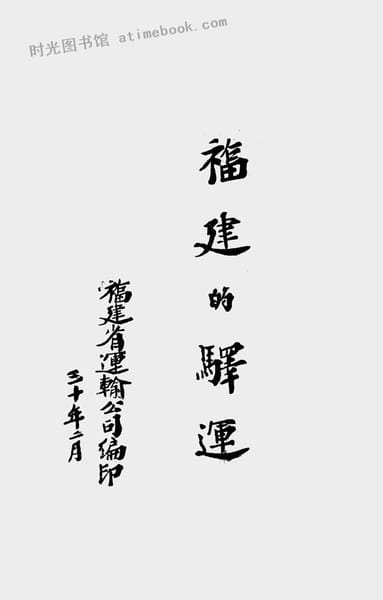 时光图书馆 atimebook.com
福建的驛運
福建省運輸公司編印
三十年二月